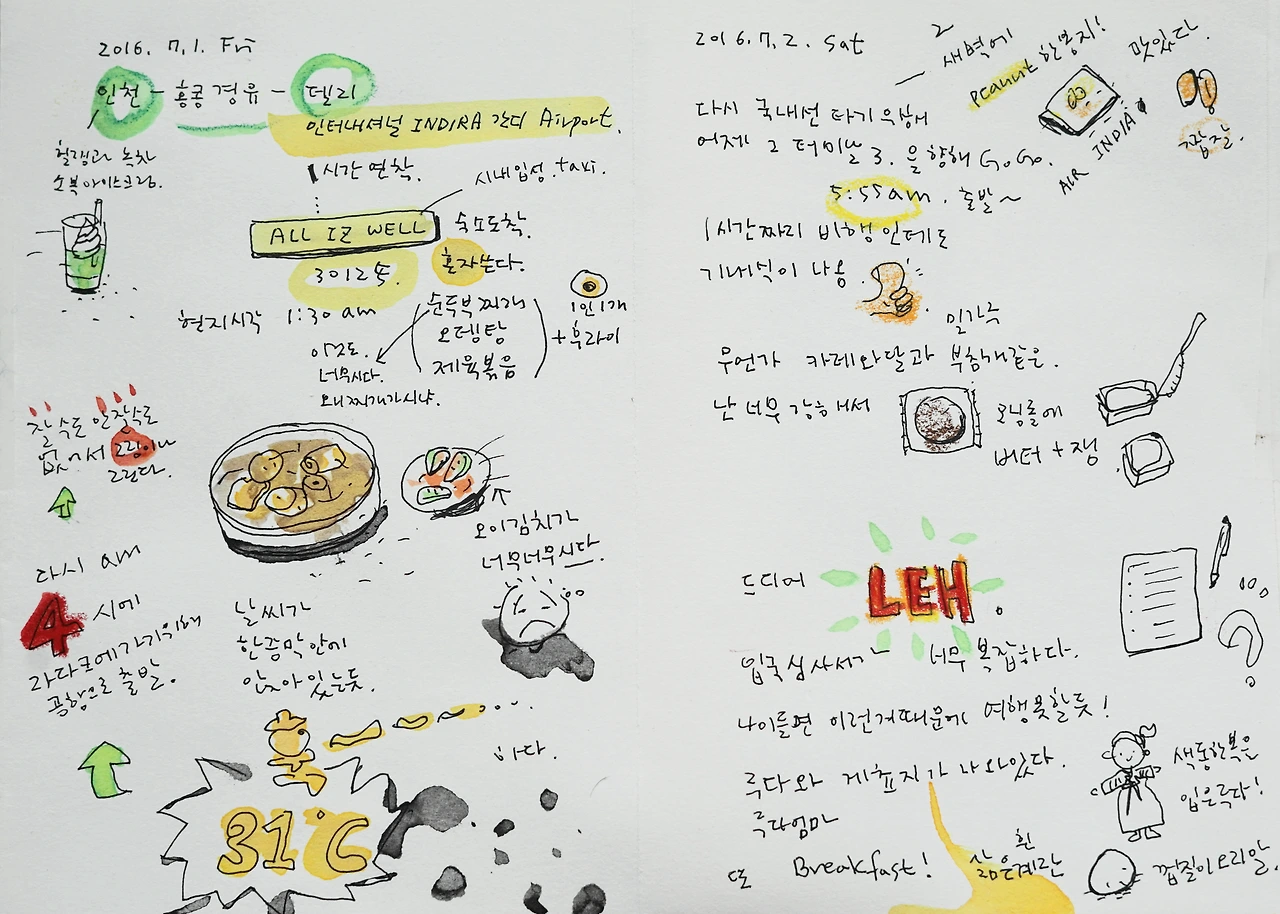 2016. 7. 1. Fri
인천 - 홍콩 경유 - 델리
인터내셔널 INDIRA 간디 Airport.
헐랭과 녹차
소복아이스크림.
1시간 연착.
시내입성. taxi.
ALL IZ WELL
숙소도착.
3012호.
혼자쓴다.
현지시각 1:30 am
순두부찌개
오뎅탕
제육볶음
+ 후라이
1인 1개
이것도.
너무시다.
왜 찌개가 시냐.
잘 수도 안잘수도
없어서 그림이나
그린다.
오이김치가
너무너무시다.
다시 am
4시에
라다크에가기위해
공항으로 출발.
날씨가
한증막 안에
앉아 있는듯.
하다.
31℃
2016. 7. 2. Sat
새벽에
peanut 한봉지!
맛있다.
AIR INDIA
짭잘.
다시 국내선 타기 위해
어제 그 터미널 3. 을 향해 GoGo.
5:55am. 출발~
1시간짜리 비행인데도
기내식이 나옴.
밀가루
무언가 카레와달과 부침개같은.
난 너무 강해서
모닝롤에
버터 + 잼
드디어 LEH.
입국심사서가 너무 복잡하다.
나이들면 이런거때문에 여행못할듯!
룩다와 게 표지가 나와있다.
룩다엄마
색동한복은
입은룩다!
또 Breakfast!
삶은계란
흰
껍질이 요리알.